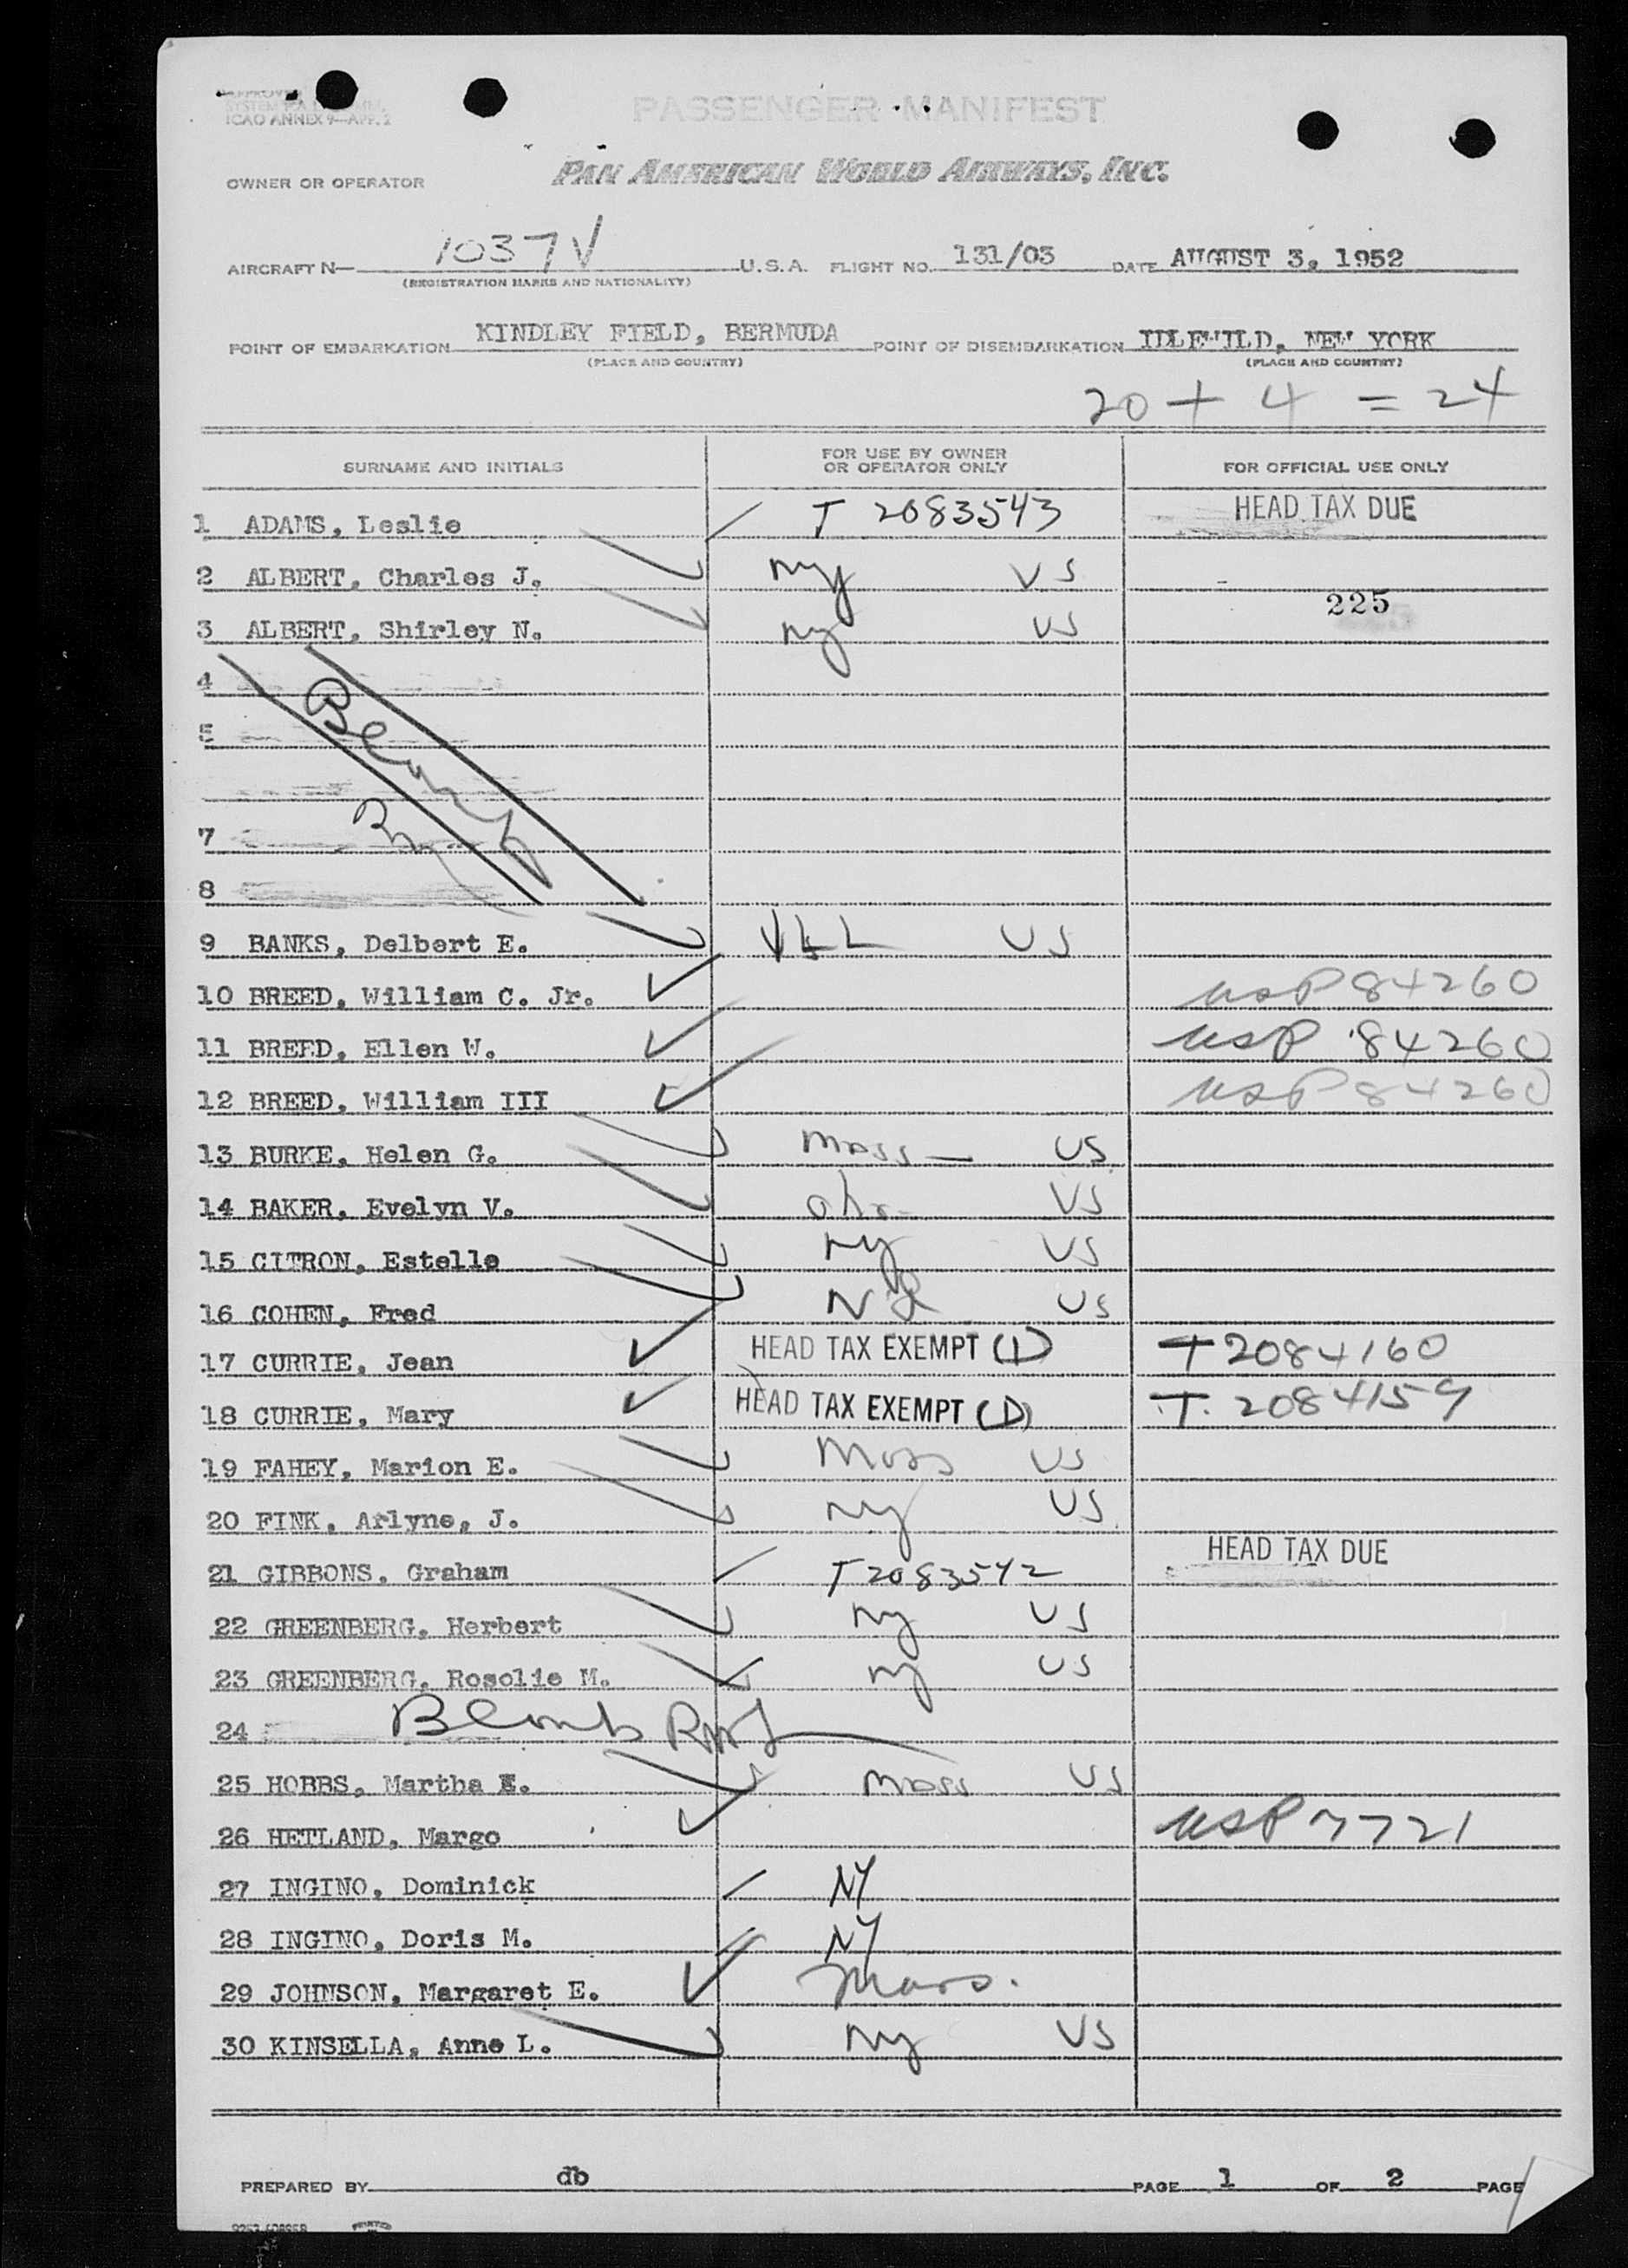 SYSTEM
ICAO ANNEX 9—APP. 2
PASSENGER MANIFEST
OWNER OR OPERATOR PAN AMERICAN WORLD AIRWAYS, INC.
AIRCRAFT N— 1037V U.S.A. FLIGHT NO. 131/03 DATE AUGUST 3, 1952
(REGISTRATION MARKS AND NATIONALITY)
POINT OF EMBARKATION KINDLEY FIELD, BERMUDA POINT OF DISEMBARKATION IDLEWILD, NEW YORK
(PLACE AND COUNTRY) (PLACE AND COUNTRY)
20 + 4 = 24
SURNAME AND INITIALS FOR USE BY OWNER OR OPERATOR ONLY FOR OFFICIAL USE ONLY
1 ADAMS, Leslie T 2083543 HEAD TAX DUE
2 ALBERT, Charles J. ny US
225
3 ALBERT, Shirley N. ny US
4
5
7
8
Blank
9 BANKS, Delbert E. US
10 BREED, William C. Jr. USP 84260
11 BREED, Ellen W. USP 84260
12 BREED, William III USP 84260
13 BURKE, Helen G. Mass — US
14 BAKER, Evelyn V. US
15 CITRON, Estelle ny US
16 COHEN, Fred US
17 CURRIE, Jean HEAD TAX EXEMPT (1) T 2084160
18 CURRIE, Mary HEAD TAX EXEMPT (1) T. 2084159
19 FAHEY, Marion E. Mass US
20 FINK, Arlyne, J. ny US
21 GIBBONS, Graham T 2083542 HEAD TAX DUE
22 GREENBERG, Herbert ny US
23 GREENBERG, Rosolie M. ny US
24 Blank
25 HOBBS, Martha E. Mass US
26 HETLAND, Margo USP 7721
27 INGINO, Dominick NY
28 INGINO, Doris M. NY
29 JOHNSON, Margaret E. Mass.
30 KINSELLA, Anne L. ny US
PREPARED BY db PAGE 1 OF 2 PAGE